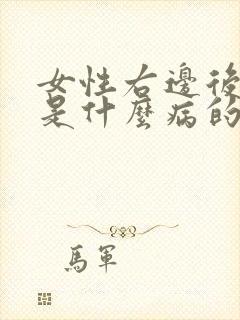 女性右邊後
是什麼病的
馬軍